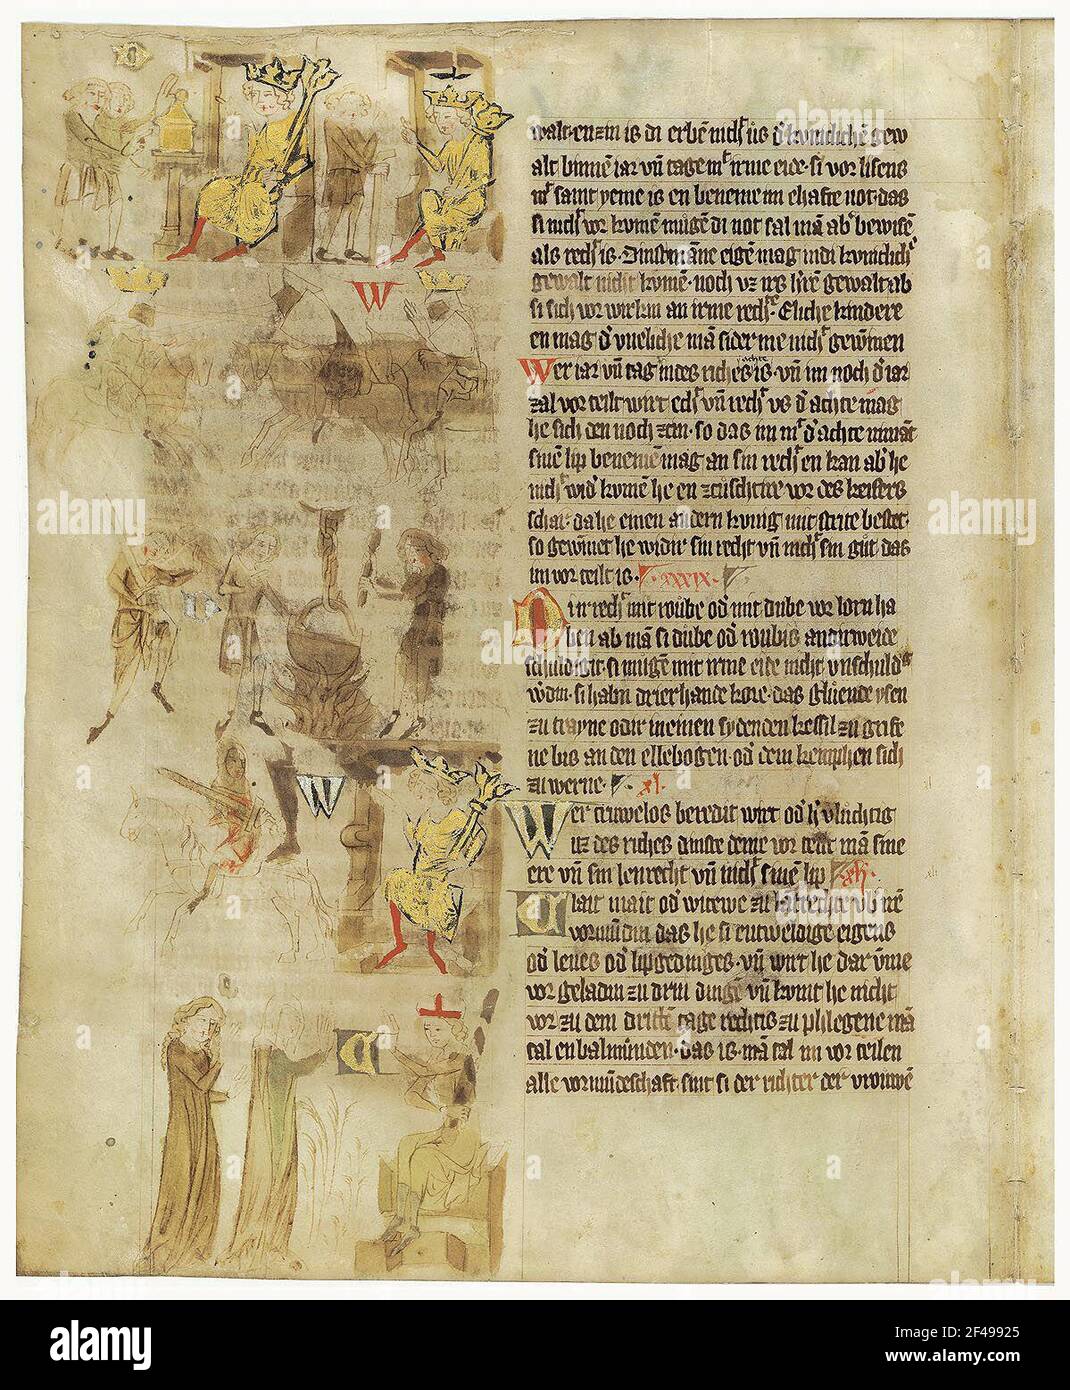 walt en zin is di erbē nich͛ us d͛ kuniclichē gew
alt binnē iar vn̄ tage mͭ irme eide · si vorlisens
mͭ saint yeme is en beneme im ehafte not · das
si nich͛ vor kumē mugē di not sal mā ab͛ bewisē
als rech͛ is · Dinstmāne eigē mag in di kuniclich͛
gewalt nicht kumē · noch vz irs h͛rē gewalt ab
si sich vor wirkin an irme rech͛ · Eliche kindere
en mag d͛ vneliche mā sider me nich͛ gewīnen
Wer iar vn̄ tag in des riches achte is · vn̄ im noch d͛ iar
zal vor teilt wirt ed͛ vn̄ rech͛ vs d͛ achte mag
he sich den noch zcin · so das im mͭ d͛ achte nimāt
sinē lip benemē mag an sin rech͛ en kan ab͛ he
nich͛ wid͛ kumē he en zcustchure vor des keisers
schar · da he einen andern kunig mit strite bestet
so gewīnet he wid͛ sin recht vn̄ nich͛ sin gut das
im vor teilt is · xxxix ·
Di ir rech͛ mit roube od͛ mit dube vor lorn ha
ben ab mā si dube od͛ roubis anderweide
schuldigit · si mugē mit irme eide nicht vnschuld͛
w͛din · si habin drier hande kore · das gluende ysen
zu trayne odir in einen sydenden kessil zu grife
ne bis an den ellebogen · od͛ dem kemphen sich
zu werne · xl ·
Wer truwelos beredit wirt od͛ h͛vluchtig
uz des riches dinste deme vor teilt mā sine
ere vn̄ sin lenrecht vn̄ nich͛ sinē lip xli ·
Clait mait od͛ witewe zu lantrechte vb͛ irē
vormūdin das he si entweldige eigens
od͛ lenes od͛ lipgedinges · vn̄ wirt he dar v̄me
vor geladin zu drin dingē vn̄ kumt he nicht
vor zu dem drittē tage rechtis zu phlegene mā
sal en balmunden · das is · mā sal im vor teilen
alle vormūdeschaft · sint si der richter der vrouwē
D
W
D
W
C
alamy
Image ID: 2F49925
www.alamy.com